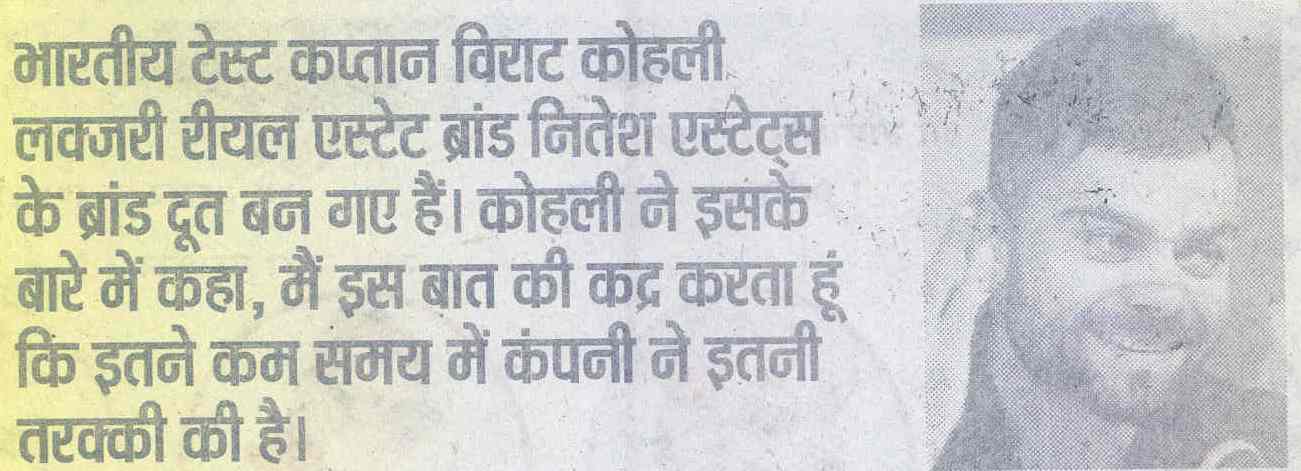 भारतीय टेस्ट कप्तान विराट कोहली
लक्जरी रीयल एस्टेट ब्रांड नितेश एस्टेट्स
के ब्रांड दूत बन गए हैं। कोहली ने इसके
बारे में कहा, मैं इस बात की कद्र करता हूं
कि इतने कम समय में कंपनी ने इतनी
तरक्की की है।